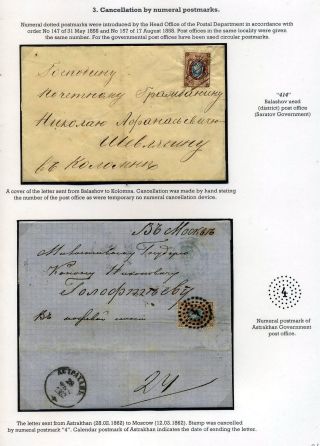 3. Cancellation by numeral postmarks.
Numeral dotted postmarks were introduced by the Head Office of the Postal Department in accordance with
order No 147 of 31 May 1858 and No 157 of 17 August 1858. Post offices in the same locality were given
the same number. For the governmental post offices have been used circular postmarks.
Господину
Почетному Гражданину
Николаю Афанасьевичу
Шевлягину
въ Коломне
"414"
Balashov uezd
(district) post office
(Saratov Government)
A cover of the letter sent from Balashov to Kolomna. Cancellation was made by hand stating
the number of the post office as were temporary no numeral cancellation device.
Въ Москву
Милостивому Государю
Въ
24
АСТРАХАНЬ
4
Numeral postmark of
Astrakhan Government
post office.
The letter sent from Astrakhan (28.02.1862) to Moscow (12.03.1862). Stamp was cancelled
by numeral postmark "4". Calendar postmark of Astrakhan indicates the date of sending the letter.